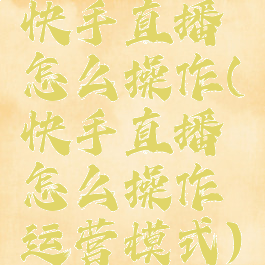 快手直播
怎么操作(
快手直播
怎么操作
运营模式)